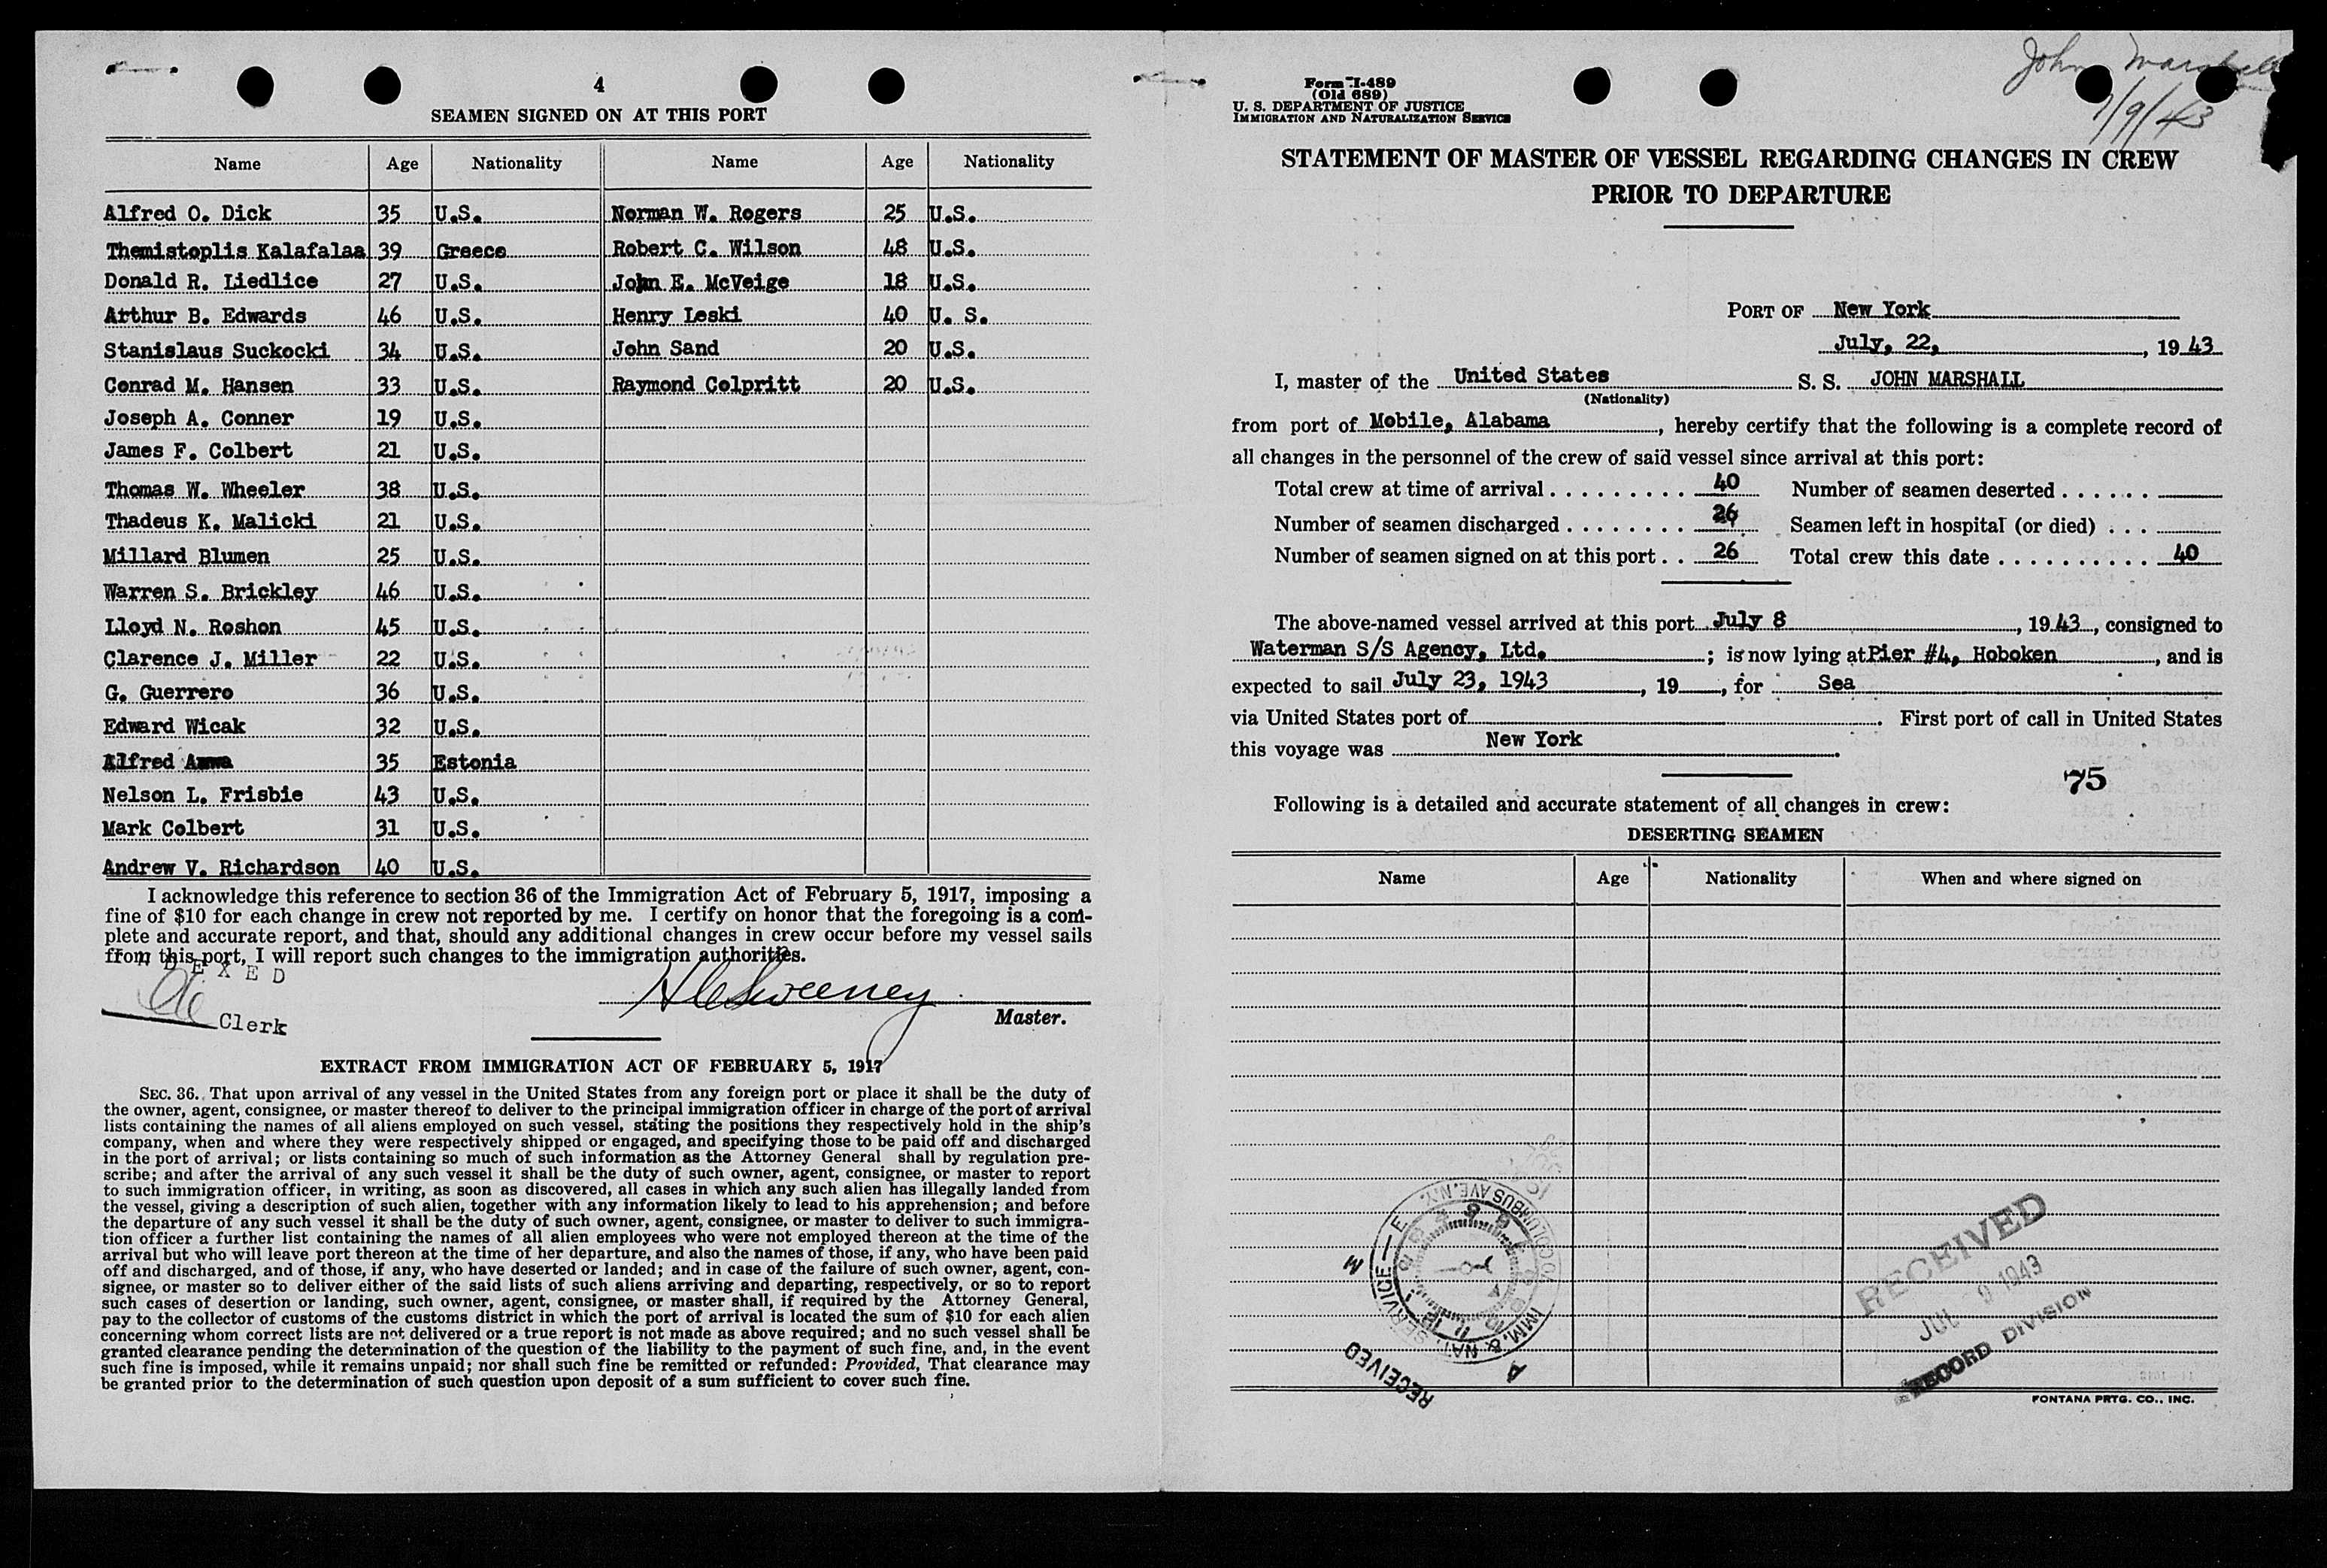 4
SEAMEN SIGNED ON AT THIS PORT
Name Age Nationality Name Age Nationality
Alfred O. Dick 35 U.S. Norman W. Rogers 25 U.S.
Themistoplis Kalafalaa 39 Greece Robert C. Wilson 48 U.S.
Donald R. Liedlice 27 U.S. John E. McVeige 18 U.S.
Arthur B. Edwards 46 U.S. Henry Leski 40 U. S.
Stanislaus Suckocki 34 U.S. John Sand 20 U.S.
Conrad M. Hansen 33 U.S. Raymond Colpritt 20 U.S.
Joseph A. Conner 19 U.S.
James F. Colbert 21 U.S.
Thomas W. Wheeler 38 U.S.
Thadeus K. Malicki 21 U.S.
Millard Blumen 25 U.S.
Warren S. Brickley 46 U.S.
Lloyd N. Roshon 45 U.S.
Clarence J. Miller 22 U.S.
G. Guerrero 36 U.S.
Edward Wicak 32 U.S.
Alfred 35 Estonia
Nelson L. Frisbie 43 U.S.
Mark Colbert 31 U.S.
Andrew V. Richardson 40 U.S.
I acknowledge this reference to section 36 of the Immigration Act of February 5, 1917, imposing a
fine of $10 for each change in crew not reported by me. I certify on honor that the foregoing is a com-
plete and accurate report, and that, should any additional changes in crew occur before my vessel sails
from this port, I will report such changes to the immigration authorities.
INDEXED
Clerk
H C Sweeney
Master.
EXTRACT FROM IMMIGRATION ACT OF FEBRUARY 5, 1917
SEC. 36. That upon arrival of any vessel in the United States from any foreign port or place it shall be the duty of
the owner, agent, consignee, or master thereof to deliver to the principal immigration officer in charge of the port of arrival
lists containing the names of all aliens employed on such vessel, stating the positions they respectively hold in the ship's
company, when and where they were respectively shipped or engaged, and specifying those to be paid off and discharged
in the port of arrival; or lists containing so much of such information as the Attorney General shall by regulation pre-
scribe; and after the arrival of any such vessel it shall be the duty of such owner, agent, consignee, or master to report
to such immigration officer, in writing, as soon as discovered, all cases in which any such alien has illegally landed from
the vessel, giving a description of such alien, together with any information likely to lead to his apprehension; and before
the departure of any such vessel it shall be the duty of such owner, agent, consignee, or master to deliver to such immigra-
tion officer a further list containing the names of all alien employees who were not employed thereon at the time of the
arrival but who will leave port thereon at the time of her departure, and also the names of those, if any, who have been paid
off and discharged, and of those, if any, who have deserted or landed; and in case of the failure of such owner, agent, con-
signee, or master so to deliver either of the said lists of such aliens arriving and departing, respectively, or so to report
such cases of desertion or landing, such owner, agent, consignee, or master shall, if required by the Attorney General,
pay to the collector of customs of the customs district in which the port of arrival is located the sum of $10 for each alien
concerning whom correct lists are not delivered or a true report is not made as above required; and no such vessel shall be
granted clearance pending the determination of the question of the liability to the payment of such fine, and, in the event
such fine is imposed, while it remains unpaid; nor shall such fine be remitted or refunded: Provided, That clearance may
be granted prior to the determination of such question upon deposit of a sum sufficient to cover such fine.
John Marshall
7/9/43
Form I-489
(Old 689)
U. S. DEPARTMENT OF JUSTICE
IMMIGRATION AND NATURALIZATION SERVICE
STATEMENT OF MASTER OF VESSEL REGARDING CHANGES IN CREW
PRIOR TO DEPARTURE
PORT OF New York
July, 22, , 19 43
I, master of the United States S. S. JOHN MARSHALL
(Nationality)
from port of Mobile, Alabama , hereby certify that the following is a complete record of
all changes in the personnel of the crew of said vessel since arrival at this port:
Total crew at time of arrival . . . . . . . . . 40 Number of seamen deserted . . . . . .
Number of seamen discharged . . . . . . . . 26 Seamen left in hospital (or died) . . .
Number of seamen signed on at this port . . 26 Total crew this date . . . . . . . . . . 40
The above-named vessel arrived at this port July 8 , 19 43 , consigned to
Waterman S/S Agency, Ltd. ; is now lying at Pier #4, Hoboken , and is
expected to sail July 23, 1943 , 19 , for Sea
via United States port of . First port of call in United States
this voyage was New York .
75
Following is a detailed and accurate statement of all changes in crew:
DESERTING SEAMEN
Name Age Nationality When and where signed on
RECEIVED
IMM. & NAT. SERVICE - E
COLUMBUS AVE. N.Y.
A M
RECEIVED
JUL 9 1943
RECORD DIVISION
FONTANA PRTG. CO., INC.